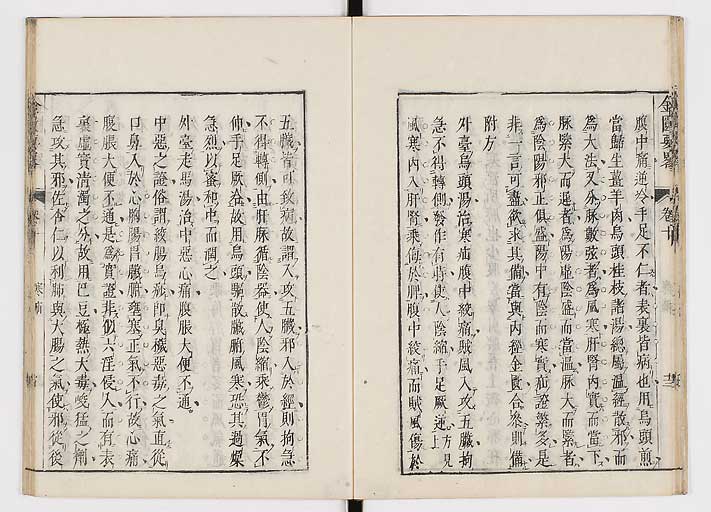 腹中痛逆冷手足不仁者表裏皆病也用烏頭煎
當歸生薑羊肉烏頭桂枝諸湯總屬溫經散邪而
為大法又分脉數弦者為風寒肝腎內實而當下
脉緊大而遲者為陽虛陰盛而當溫脉大而緊者
為陰陽邪正俱盛陽中有陰而寒實疝證繁多是
非一言可盡欲求其備當與內徑金匱合叅則備
附方
外臺烏頭湯治寒疝腹中絞痛賊風入攻五臟拘
急不得轉側發作有時使人陰縮手足厥逆上方見
風寒內入肝腎乘侮於脾腹中絞痛而賊風傷於
五臟皆可致病故謂入攻五臟邪入於經則拘急
不得轉側由肝脉循陰器使人陰縮乘鬱胃氣不
伸手足厥逆故用烏頭驅散臟腑風寒恐其過燥
急烈以蜜和中而潤之
外臺走馬湯治中惡心痛腹脹大便不通
中惡之證俗謂絞腸烏痧即臭穢惡毒之氣直從
口鼻入於心胸腸胃臟腑壅塞正氣不行故心痛
腹脹大便不通是為實證非似六淫侵入而有表
裏虛實清濁之分故用巴豆極熱大毒峻猛之劑
急攻其邪佐杏仁以利肺與大腸之氣使邪從後
金匱要畧
卷十